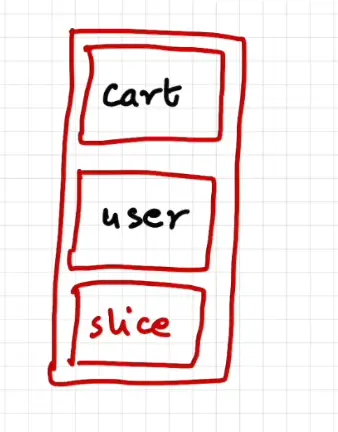 cart
user
slice